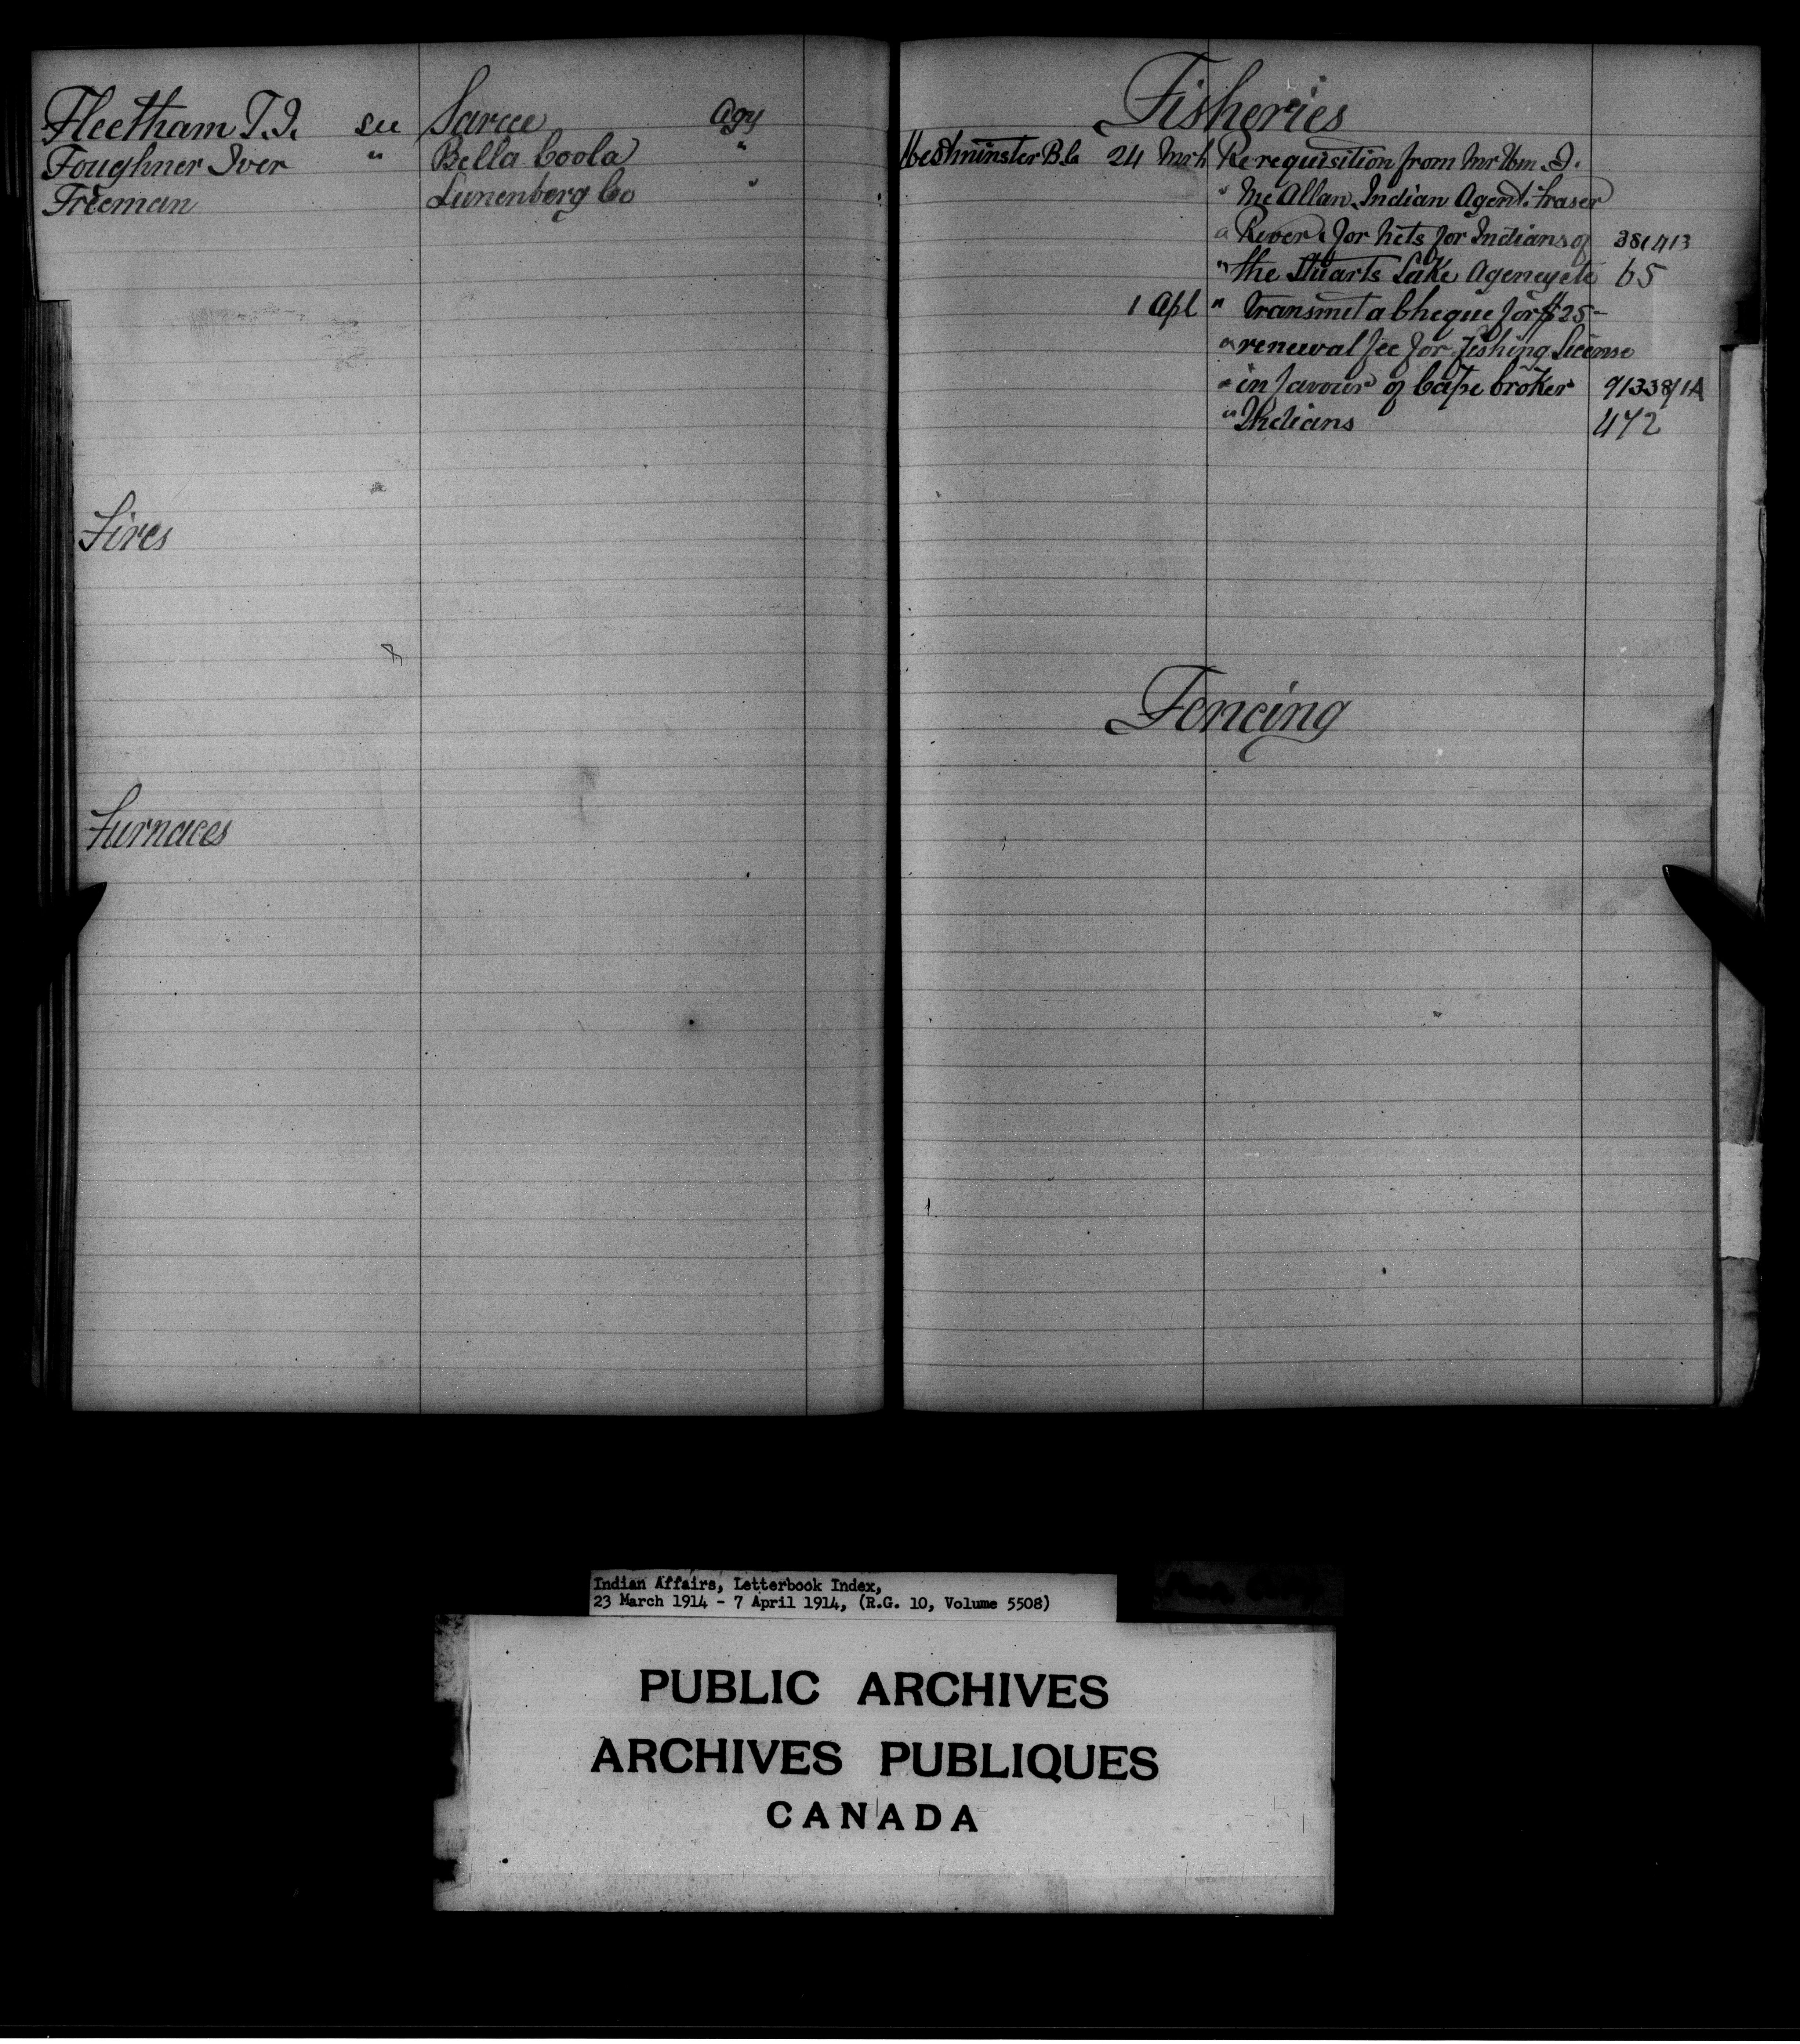 Fleetham T.J. see Sarcee Agy
Foughner Iver " Bella Coola "
Freeman Lunenberg Co "
Fires
Furnaces
Fisheries
Westminster B.C. 24 Mrh Re requisition from Mr Wm J.
" McAllan, Indian Agent. Fraser
" River, for nets for Indians of 381413
" the Stuarts Lake Agency etc 65
1 Apl " transmit a Cheque for $25-
" renewal fee for fishing License
" in favour of Cape Croker 91338/1A
" Indians 472
Fencing
Indian Affairs, Letterbook Index,
23 March 1914 - 7 April 1914, (R.G. 10, Volume 5508)
PUBLIC ARCHIVES
ARCHIVES PUBLIQUES
CANADA